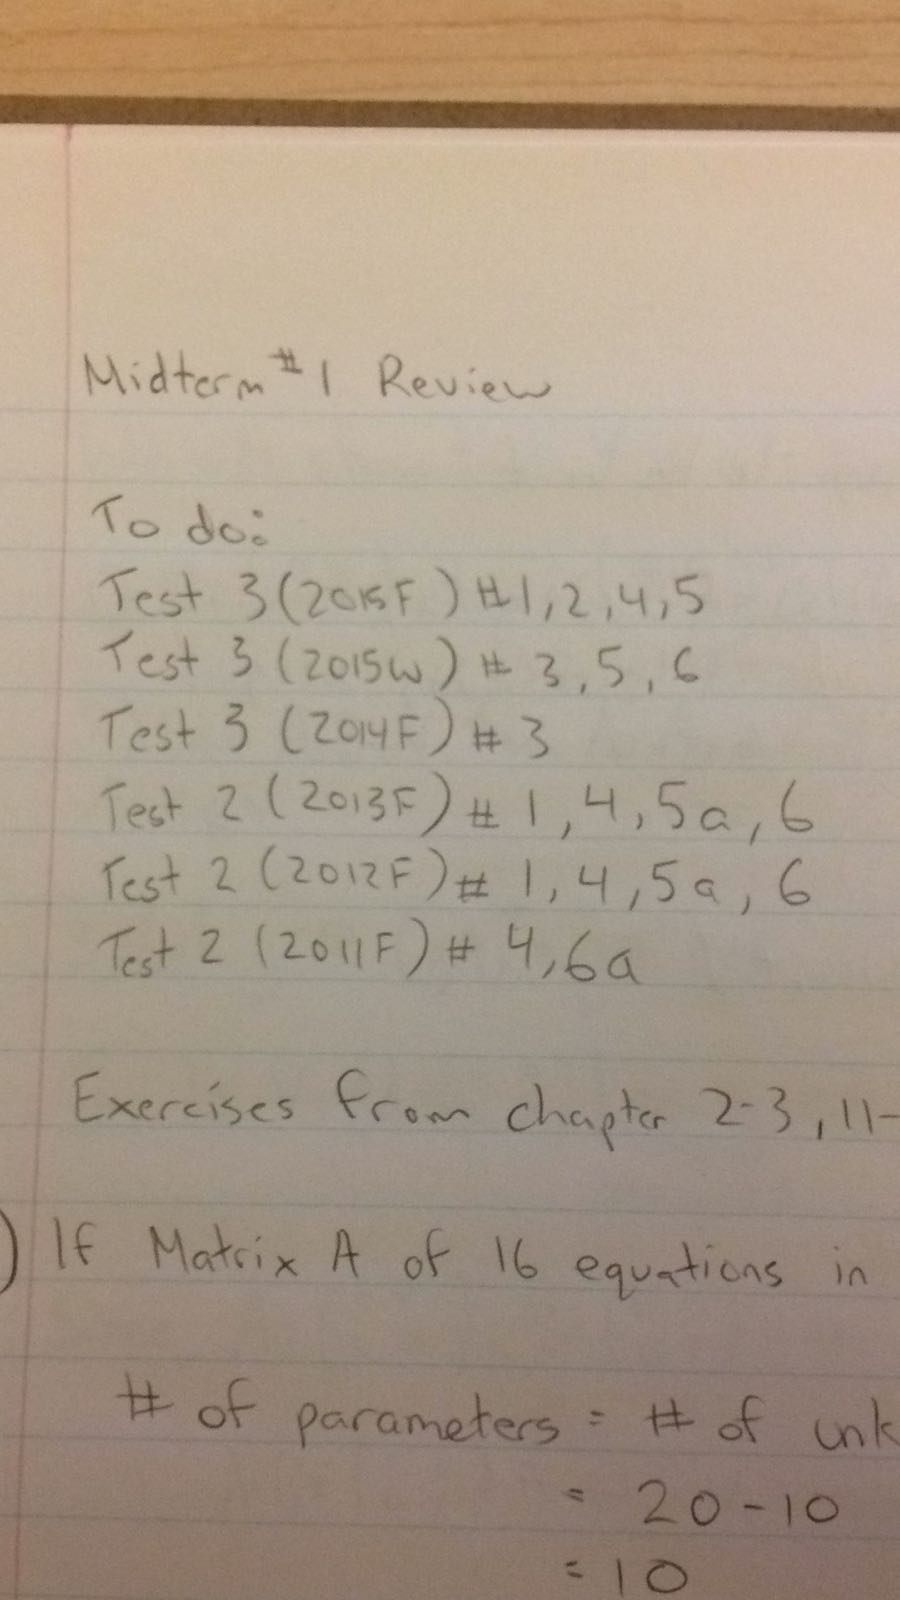 Midterm #1 Review
To do:
Test 3 (2015F) #1,2,4,5
Test 3 (2015W) # 3,5,6
Test 3 (2014F) # 3
Test 2 (2013F) # 1,4,5a,6
Test 2 (2012F) # 1,4,5a,6
Test 2 (2011F) # 4,6a
Exercises from chapter 2-3, 11-
) If Matrix A of 16 equations in
# of parameters = # of unk
= 20-10
= 10